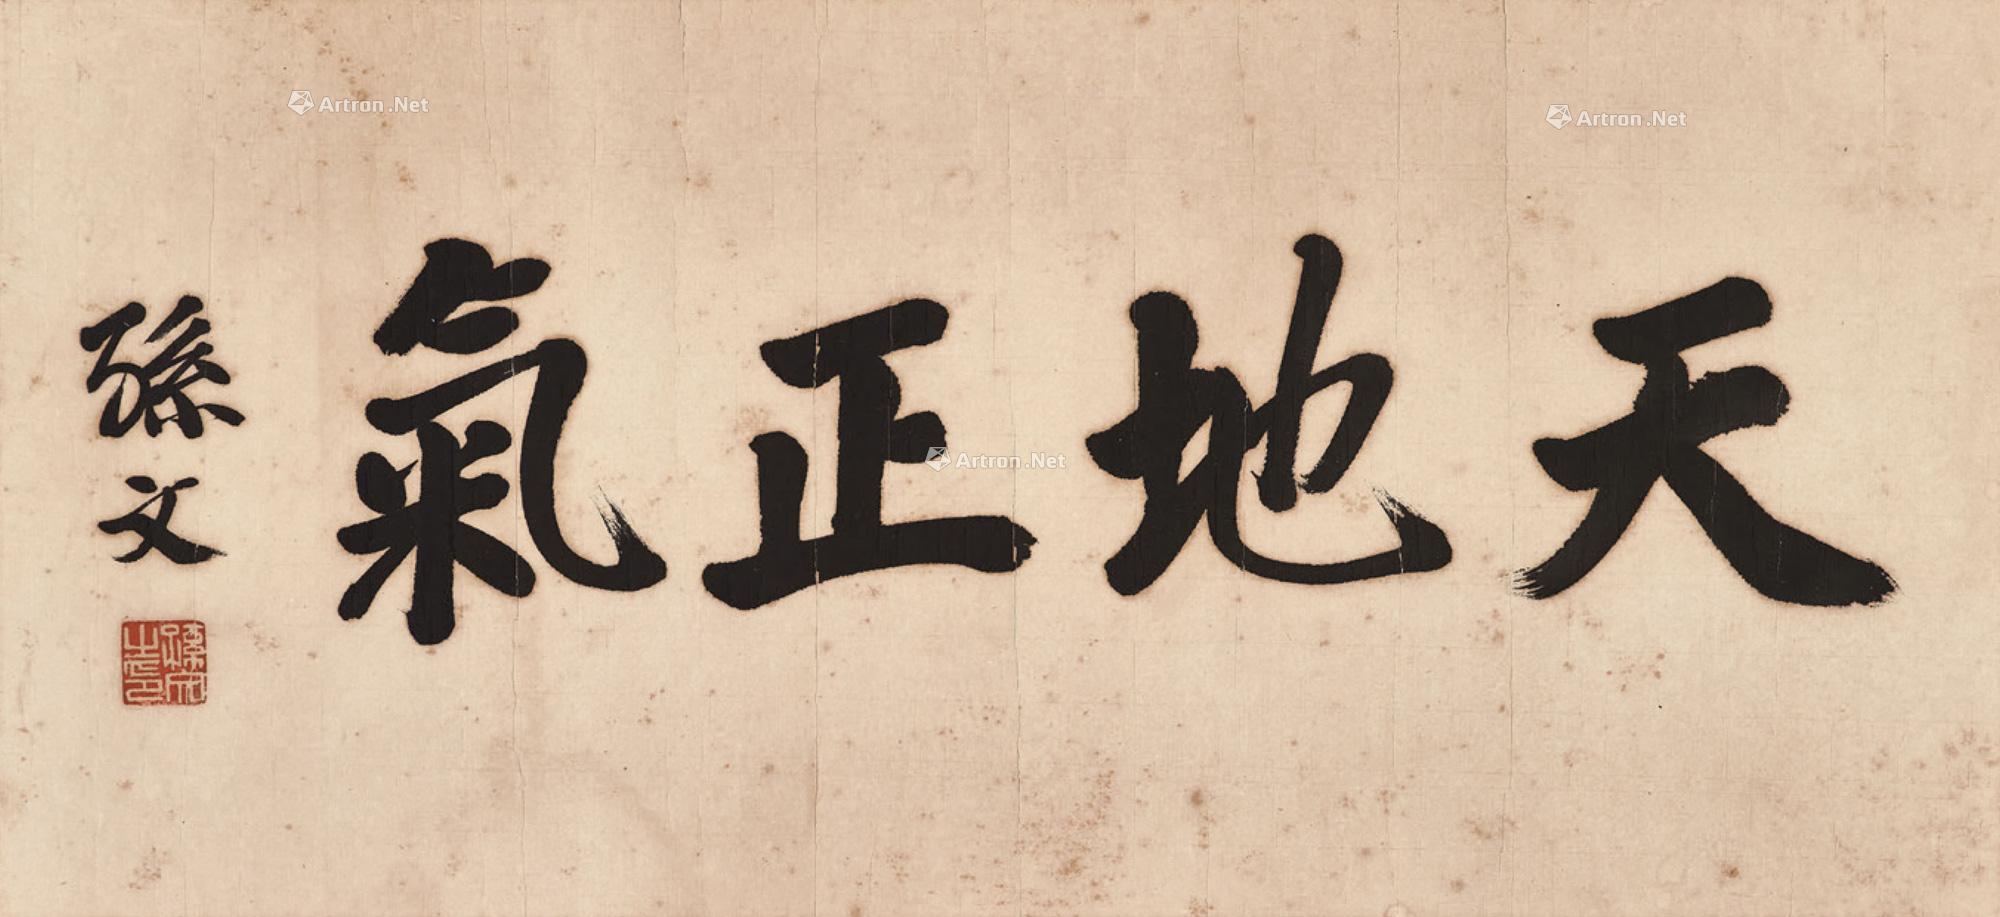 天地正氣
孫文
孫文之印
Artron.Net
Artron.Net
Artron.Net